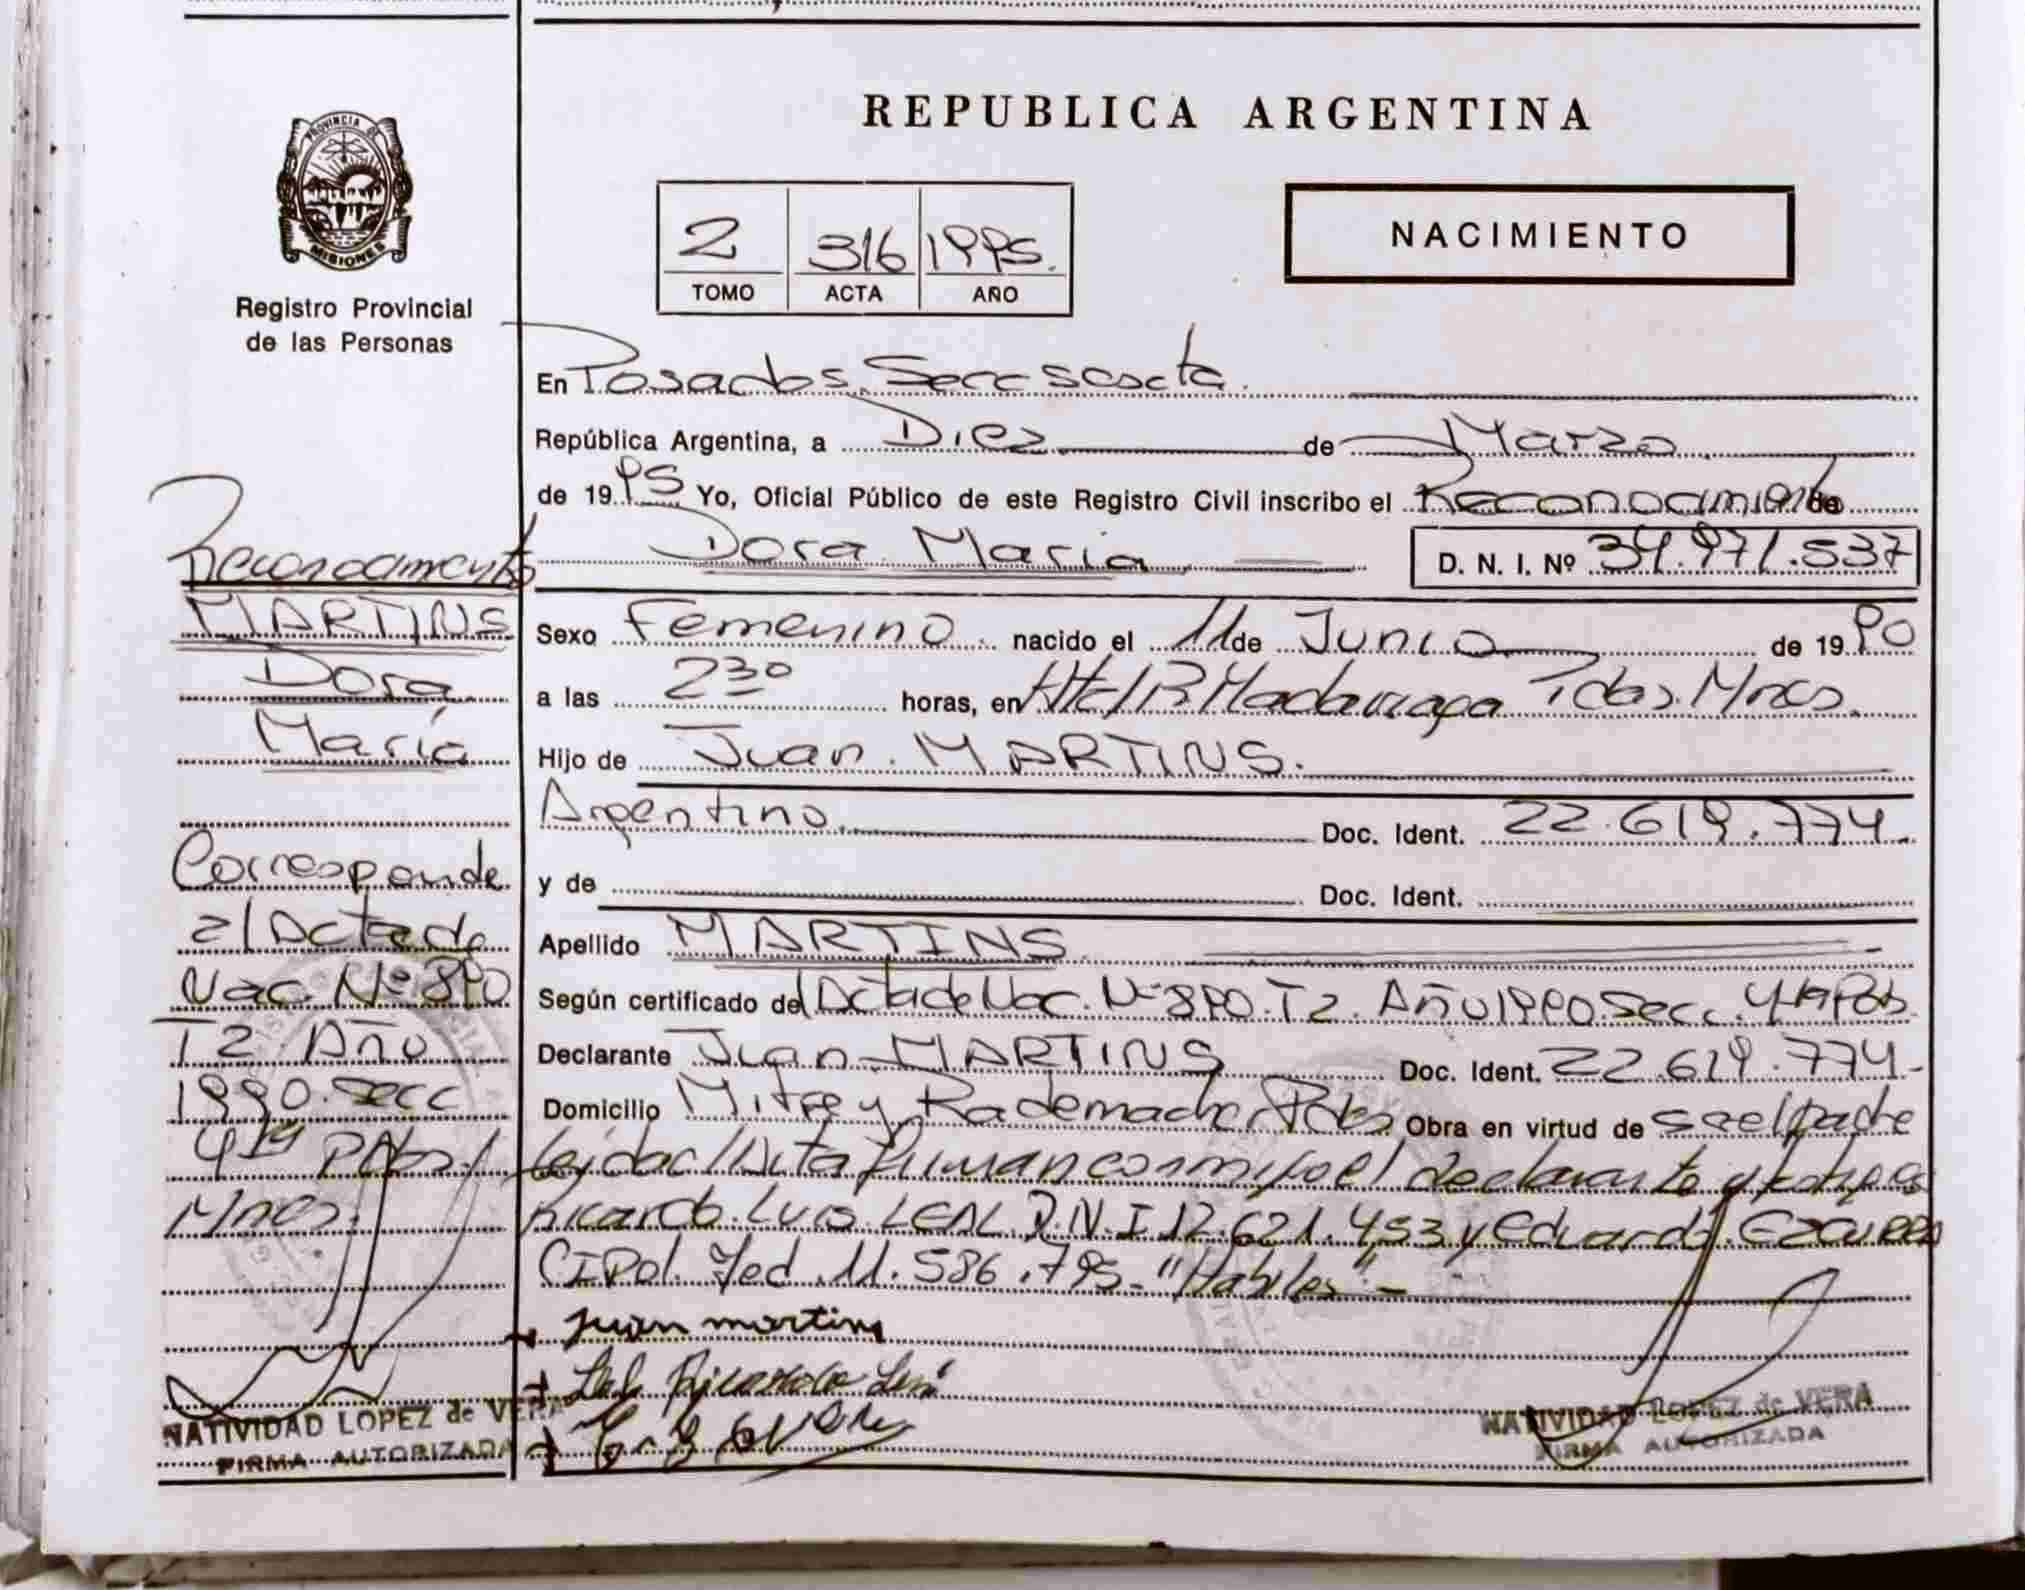 REPUBLICA ARGENTINA
PROVINCIA DE MISIONES
Registro Provincial
de las Personas
2 316 1995.
TOMO ACTA AÑO
NACIMIENTO
En Posadas Secc sexta.
República Argentina, a Diez de Marzo
de 1995 Yo, Oficial Público de este Registro Civil inscribo el Reconocimiento de
Dora Maria D. N. I. Nº 34.971.537
Sexo Femenino nacido el 11 de Junio de 1990
a las 2 30 horas, en Htal R Madariaga Pdas. Mnes.
Hijo de Juan MARTINS.
Argentino Doc. Ident. 22.619.774.
y de Doc. Ident.
Apellido MARTINS
Según certificado del Acta de Nac. Nº 890. T2. Año 1990. Secc. 4ta Pdas.
Declarante Juan MARTINS Doc. Ident. 22.619.774-
Domicilio Mitre y Rademacher Pdas Obra en virtud de ser el padre
Leída el Acta firman conmigo el declarante y testigos
Ricardo Luis LEAL D.N.I 12.621.453 y Eduardo EZCURRA
CI Pol. Fed. 11.586.795- "Habiles" -
Juan martins
Leal Ricardo Luis
NATIVIDAD LOPEZ de VERA
FIRMA AUTORIZADA
Reconocimiento
MARTINS
Dora
María
Corresponde
al Acta de
Nac. Nº 890
T2 Año
1990. Secc
4ta Pdas.
Mnes.
NATIVIDAD LOPEZ de VERA
FIRMA AUTORIZADA